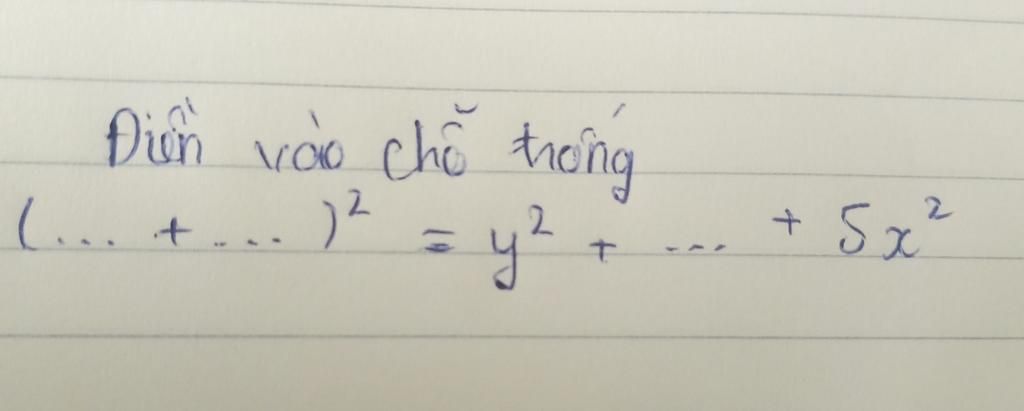 Điền vào chỗ trống
(... + ....)² = y² + ... + 5x²